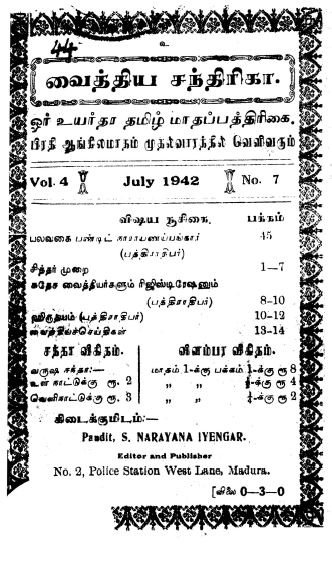 44
உ
வைத்திய சந்திரிகா.
ஓர் உயர்தர தமிழ் மாதப்பத்திரிகை.
பிரதி ஆங்கிலமாதம் முதல்வாரத்தில் வெளிவரும்
Vol. 4 July 1942 No. 7
விஷய சூசிகை. பக்கம்
பலவகை பண்டிட் நாராயணய்யங்கார் 45
(பத்திராதிபர்)
சித்தர் முறை 1—7
சுதேச வைத்தியர்களும் ரிஜிஸ்டிரேஷனும்
(பத்திராதிபர்) 8-10
ஹிருதயம் (பத்திராதிபர்) 10-12
வைத்தியச்செய்திகள் 13-14
சந்தா விகிதம். விளம்பர விகிதம்.
வருஷ சந்தா:— மாதம் 1-க்கு பக்கம் 1-க்கு ரூ 8
உள் நாட்டுக்கு ரூ. 2 „ „ ½-க்கு ரூ 4
வெளிநாட்டுக்கு ரூ. 3 „ „ ¼-க்கு ரூ 2
கிடைக்குமிடம்:—
Pandit, S. NARAYANA IYENGAR.
Editor and Publisher
No. 2, Police Station West Lane, Madura.
[விலை 0—3—0